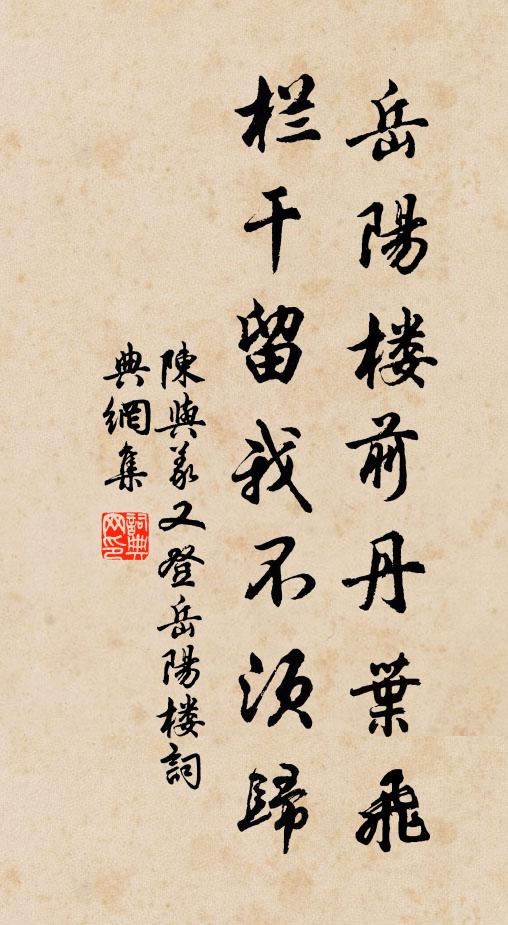 岳陽楼前丹葉飛
栏干留我不须歸
陳與義又登岳陽楼詞
典網集
詞典网印